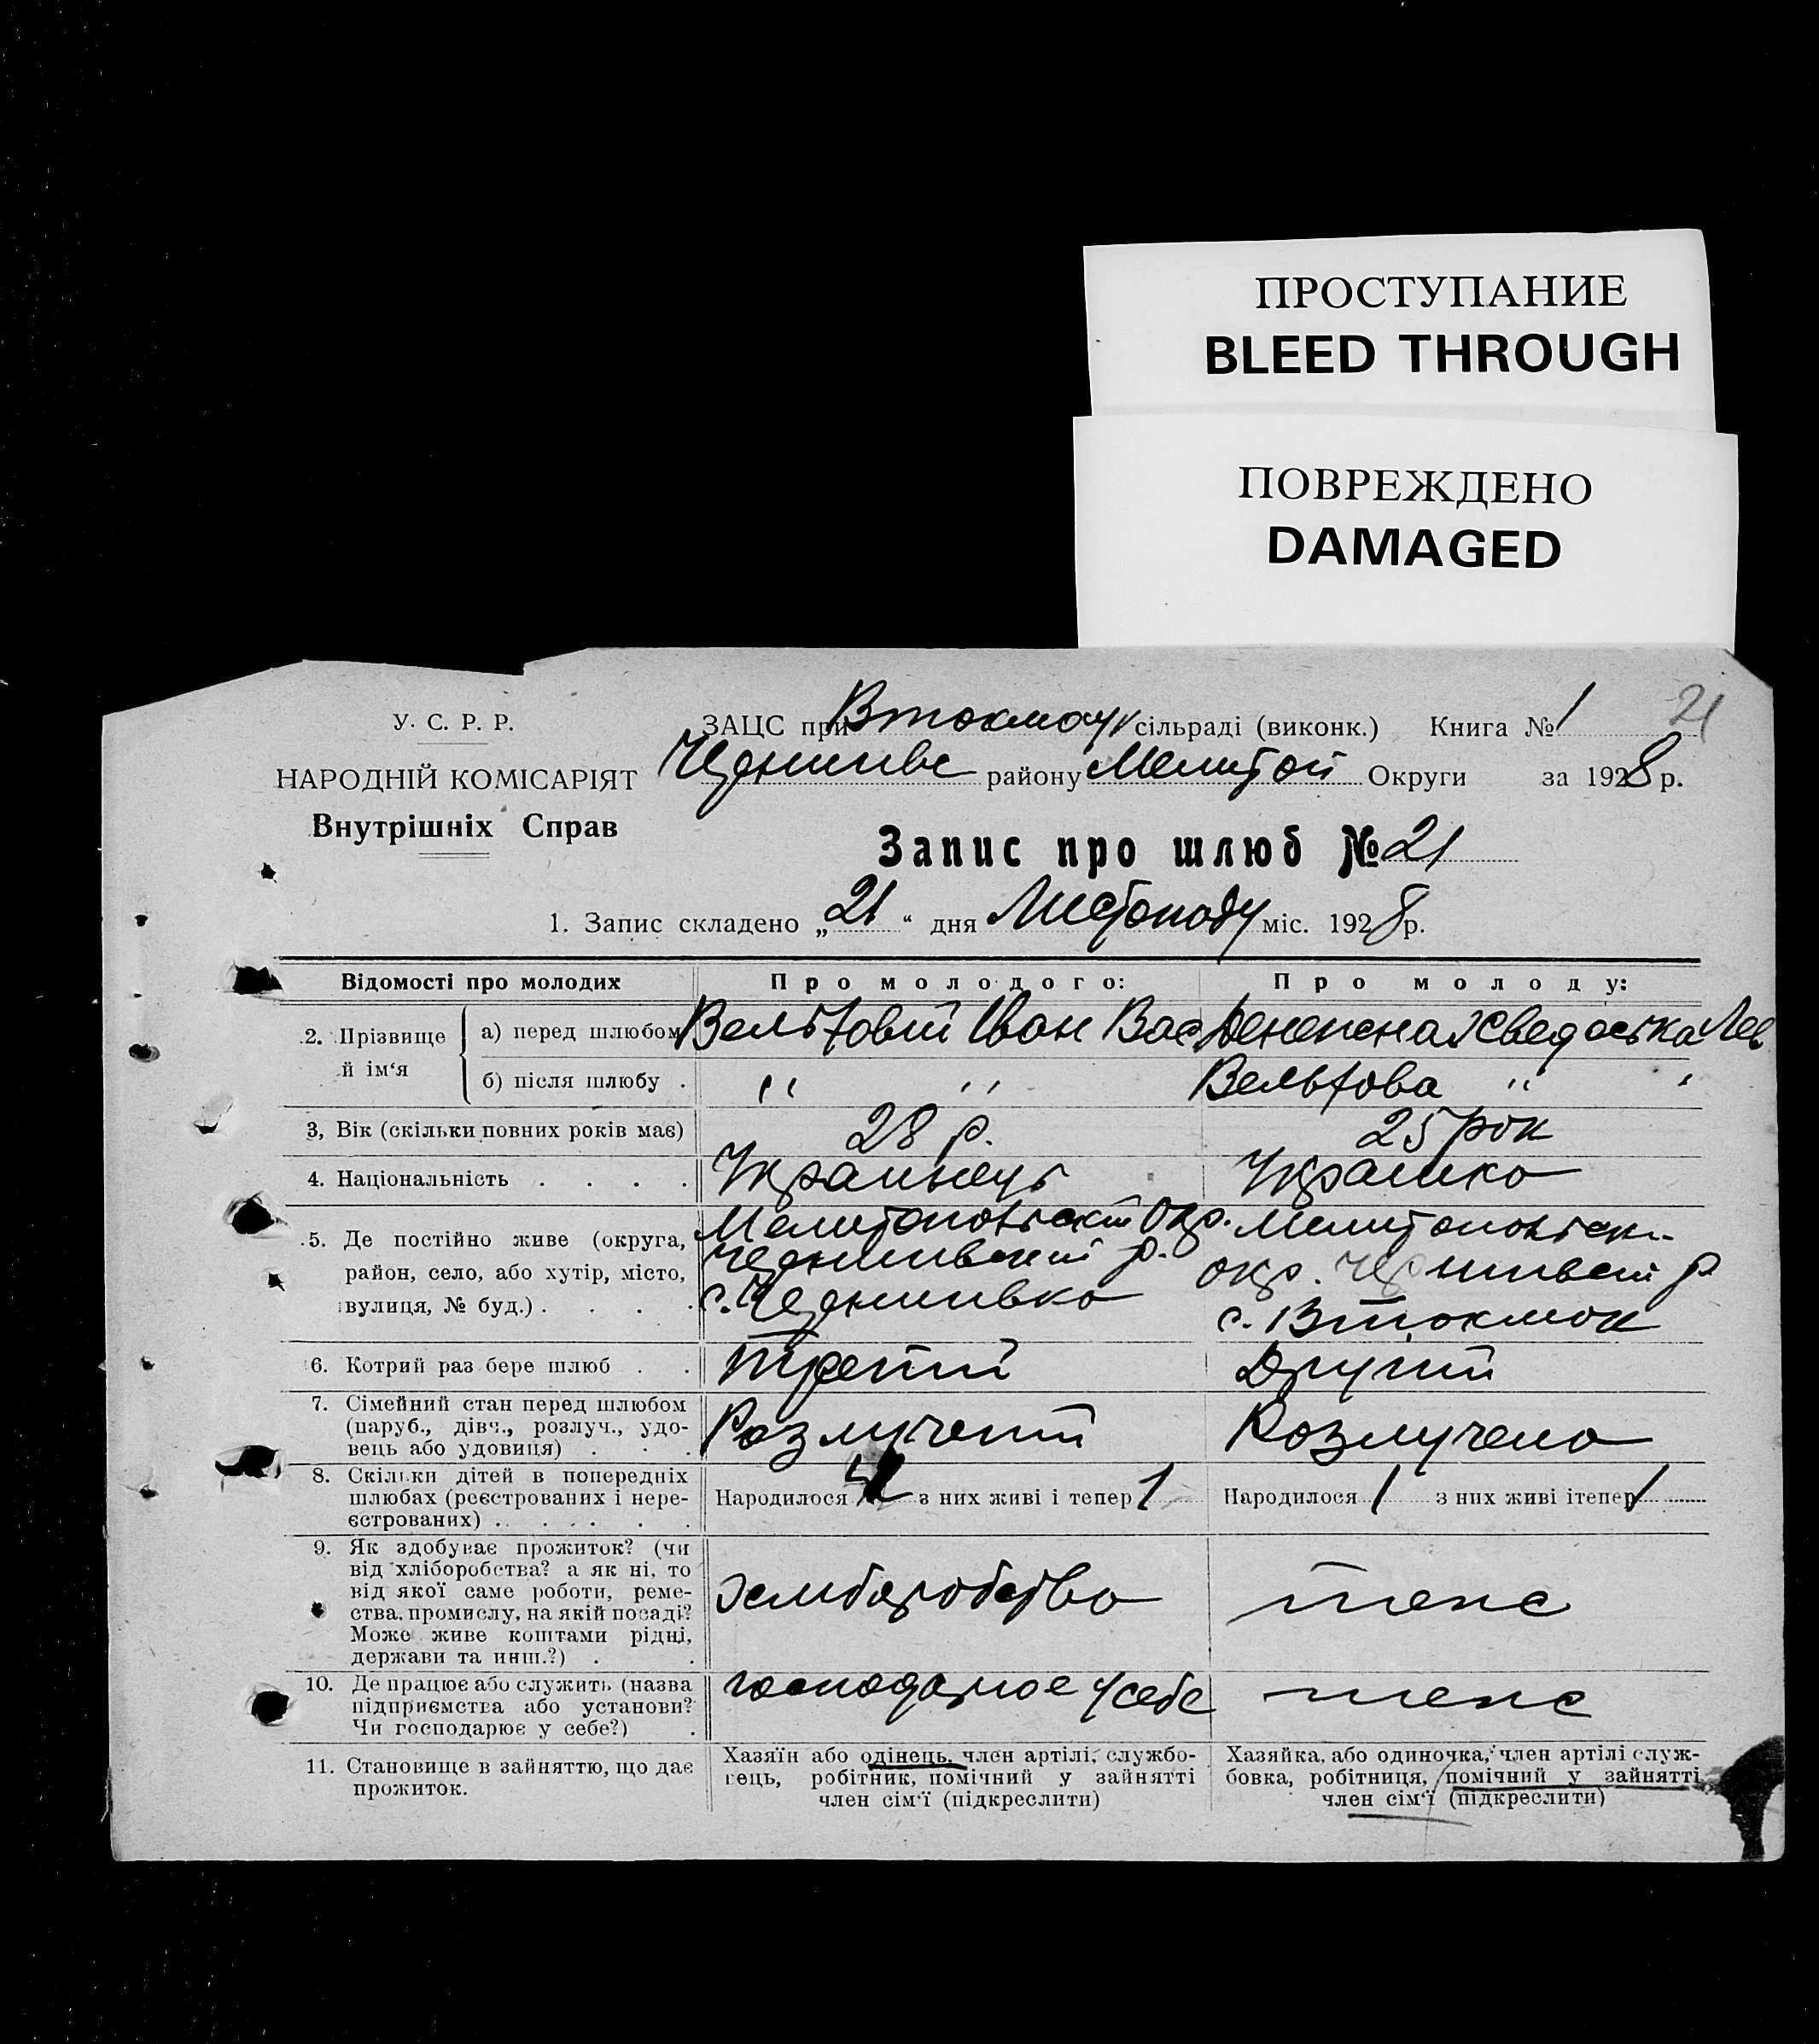 ПРОСТУПАНИЕ
BLEED THROUGH
ПОВРЕЖДЕНО
DAMAGED
21
У. С. Р. Р.
НАРОДНІЙ КОМІСАРІЯТ
Внутрішніх Справ
ЗАЦС при Втокмоцьк сільраді (виконк.) Книга № 1
району Мелитой Округи за 1928 р.
Запис про шлюб № 21
1. Запис складено „21“ дня Листопаду міс. 1928 р.
Відомості про молодих Про молодого: Про молоду:
2. Прізвище й ім‘я
а) перед шлюбом Іван Вас Лев
б) після шлюбу . " " " "
3, Вік (скільки повних років має) 28 р. 25 рок
4. Національність . . . . Українець Українка
5. Де постійно живе (округа,
район, село, або хутір, місто,
вулиця, № буд.) . . . .
Мелитопольский Окр.
р.
с.
Мелитопольськ
окр. р
с. Втокмок
6. Котрий раз бере шлюб . . Третий Другий
7. Сімейний стан перед шлюбом
(паруб., дівч., розлуч., удо-
вець або удовиця) . . .
Розлучений Розлучена
8. Скільки дітей в попередніх
шлюбах (реєстрованих і нере-
єстрованих) . . . . .
Народилося з них живі і тепер 1 Народилося 1 з них живі ітепер 1
9. Як здобуває прожиток? (чи
від хліборобства? а як ні, то
від якої саме роботи, реме-
ства, промислу, на якій посаді?
Може живе коштами рідні,
держави та инш.?) . .
тоже
10. Де працює або служить (назва
підприємства або установи?
Чи господарює у себе?) .
господарює у себе тоже
11. Становище в зайняттю, що дає
прожиток.
Хазяїн або одінець, член артілі, службо-
вець, робітник, помічний у зайнятті
член сім‘ї (підкреслити)
Хазяйка, або одиночка, член артілі служ-
бовка, робітниця, помічний у зайнятті
член сім‘ї (підкреслити)